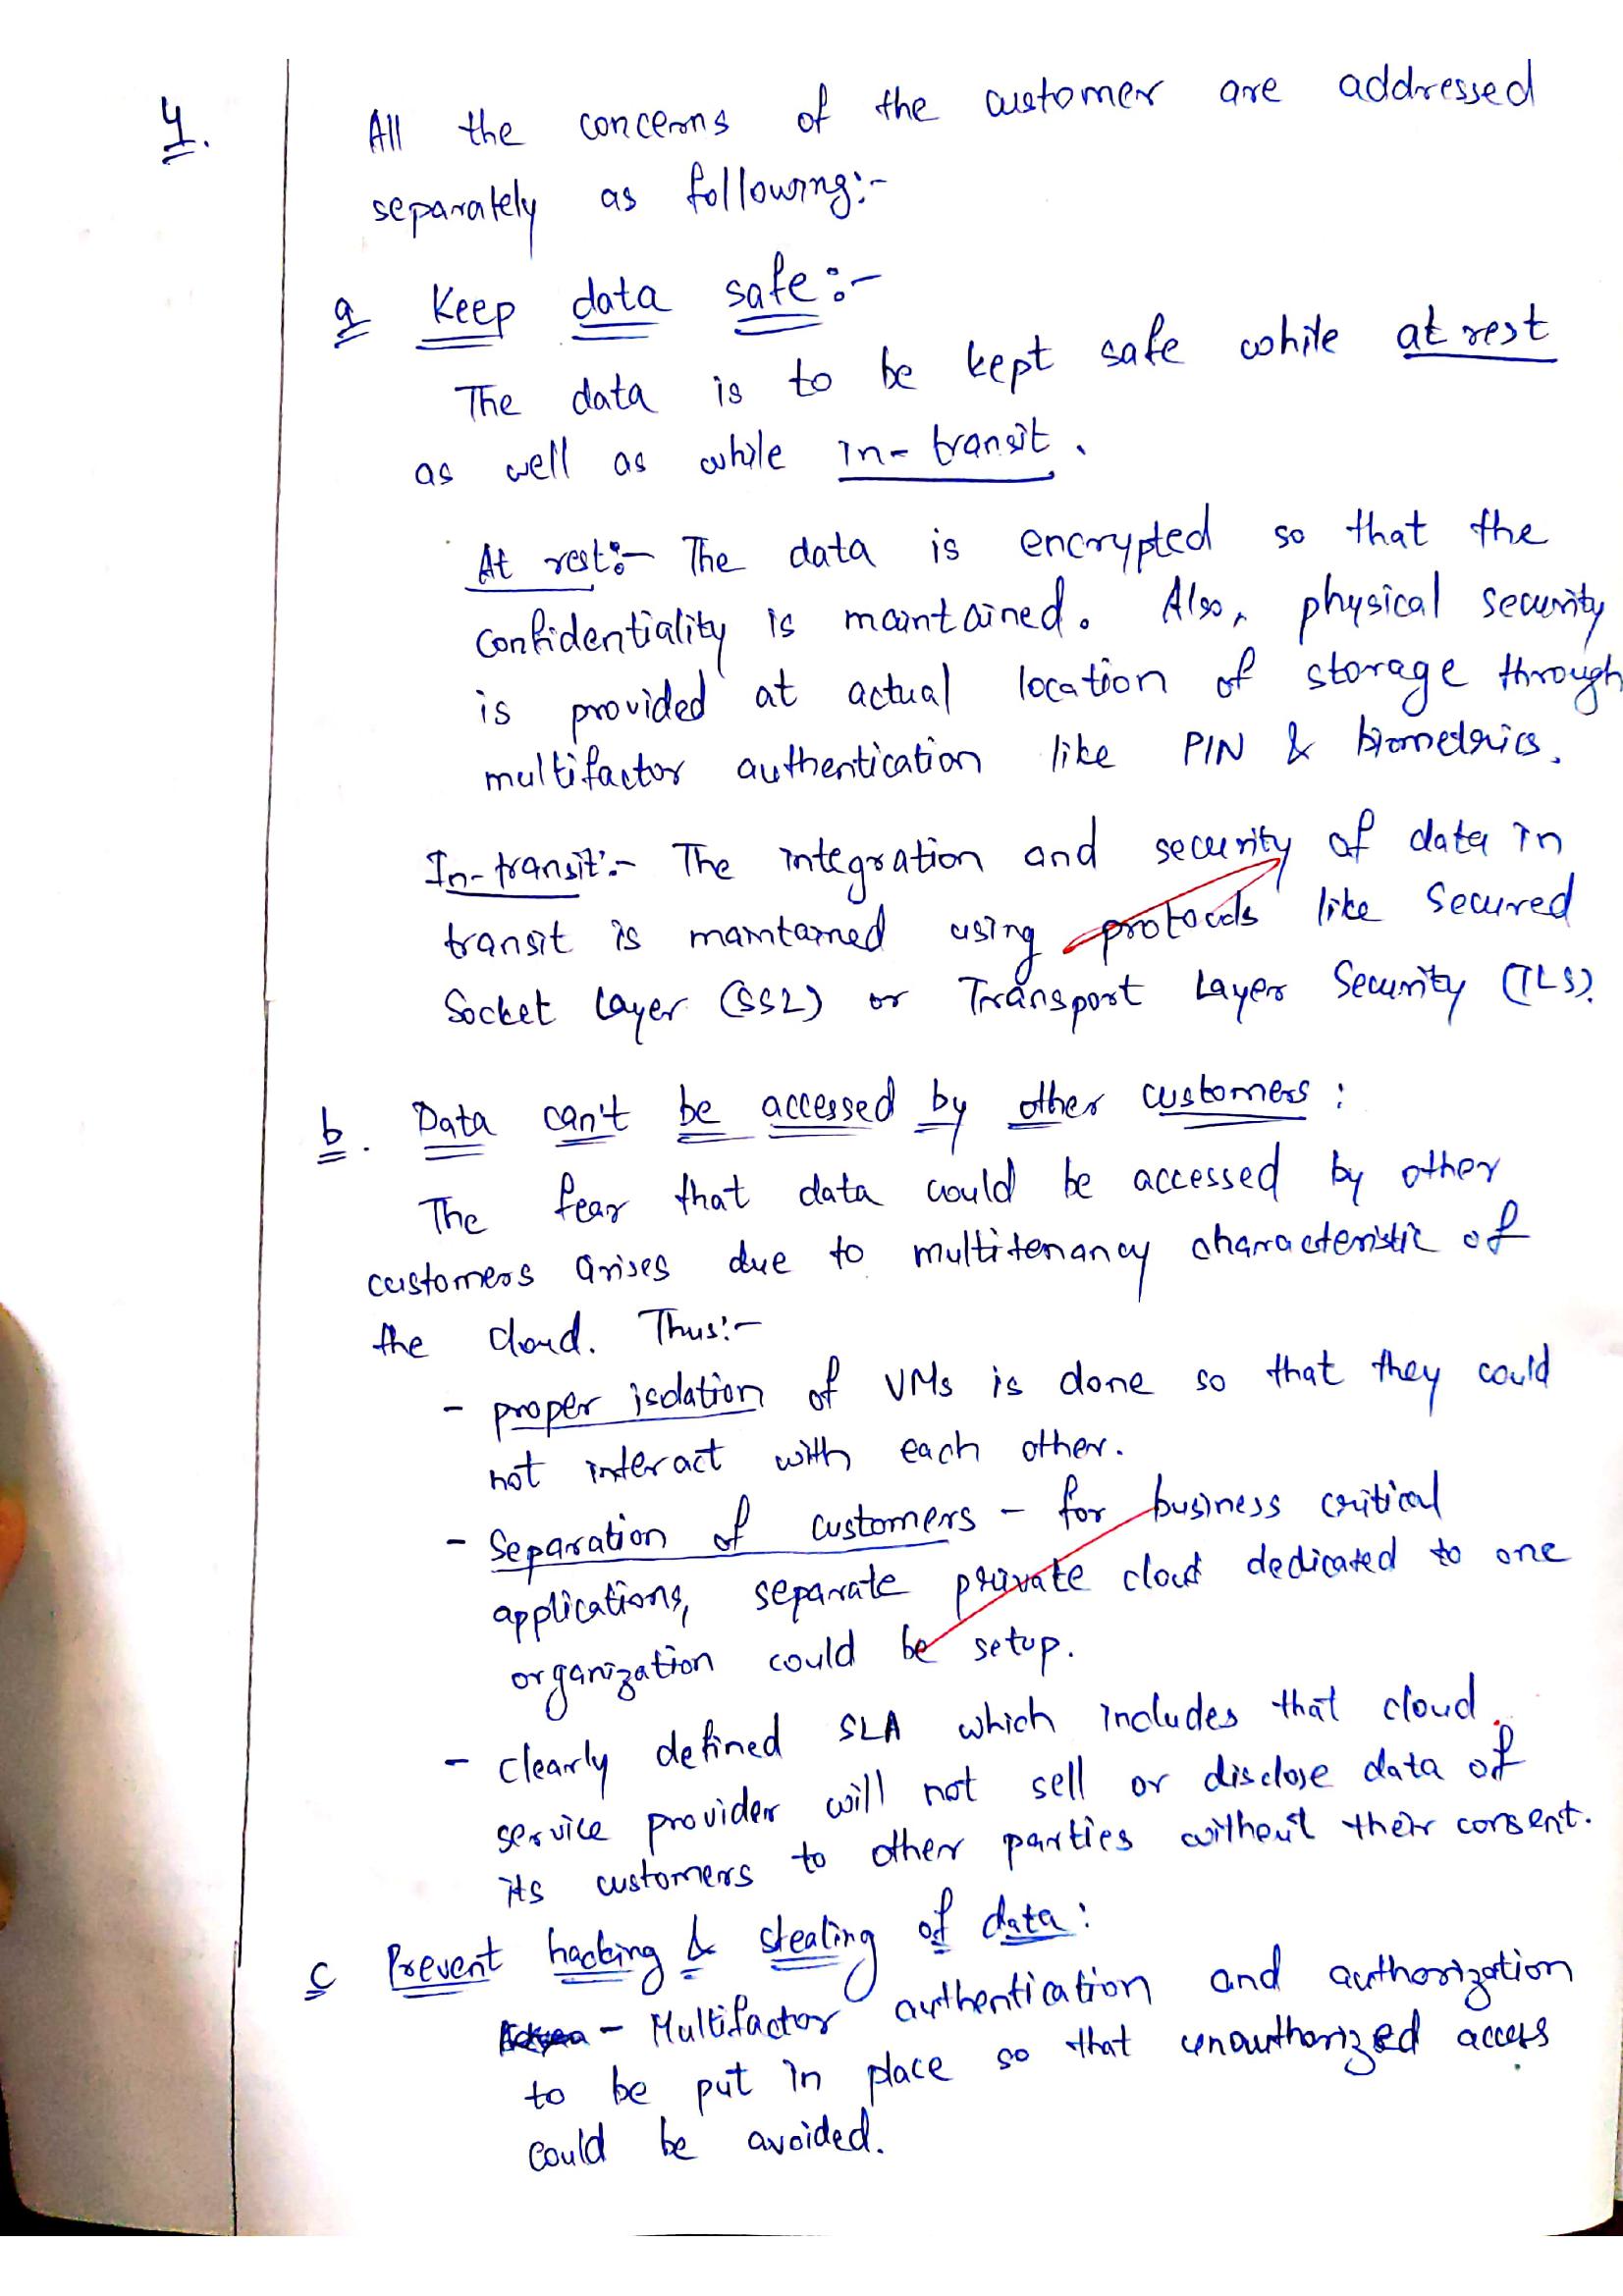 4. All the concerns of the customer are addressed
separately as following:-
a Keep data safe:-
The data is to be kept safe while at rest
as well as while in-transit.
At rest:- The data is encrypted so that the
confidentiality is maintained. Also, physical security
is provided at actual location of storage through
multifactor authentication like PIN & biometrics.
In-transit:- The integration and security of data in
transit is maintained using protocols like Secured
Socket Layer (SSL) or Transport Layer Security (TLS).
b. Data can't be accessed by other customers:
The fear that data could be accessed by other
customers arises due to multitenancy characteristic of
the cloud. Thus:-
- proper isolation of VMs is done so that they could
not interact with each other.
- Separation of customers - for business critical
applications, separate private cloud dedicated to one
organization could be setup.
- clearly defined SLA which includes that cloud
service provider will not sell or disclose data of
its customers to other parties without their consent.
c Prevent hacking & stealing of data:
- Multifactor authentication and authorization
to be put in place so that unauthorized access
could be avoided.